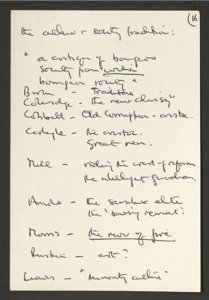 16
the culture & society tradition:
"a critique of bourgeois
society from within
bourgeois society"
Burke – Tradition
Coleridge – the new clerisy"
Cobbett – Old Corruption –
Carlyle – the
Great men.
Mill – riding the crest of reform
the intelligent
Arnold – the sensitive elite
the 'saving remnant'
Morris – the river of fire
Ruskin – art?
Leavis – "minority culture"